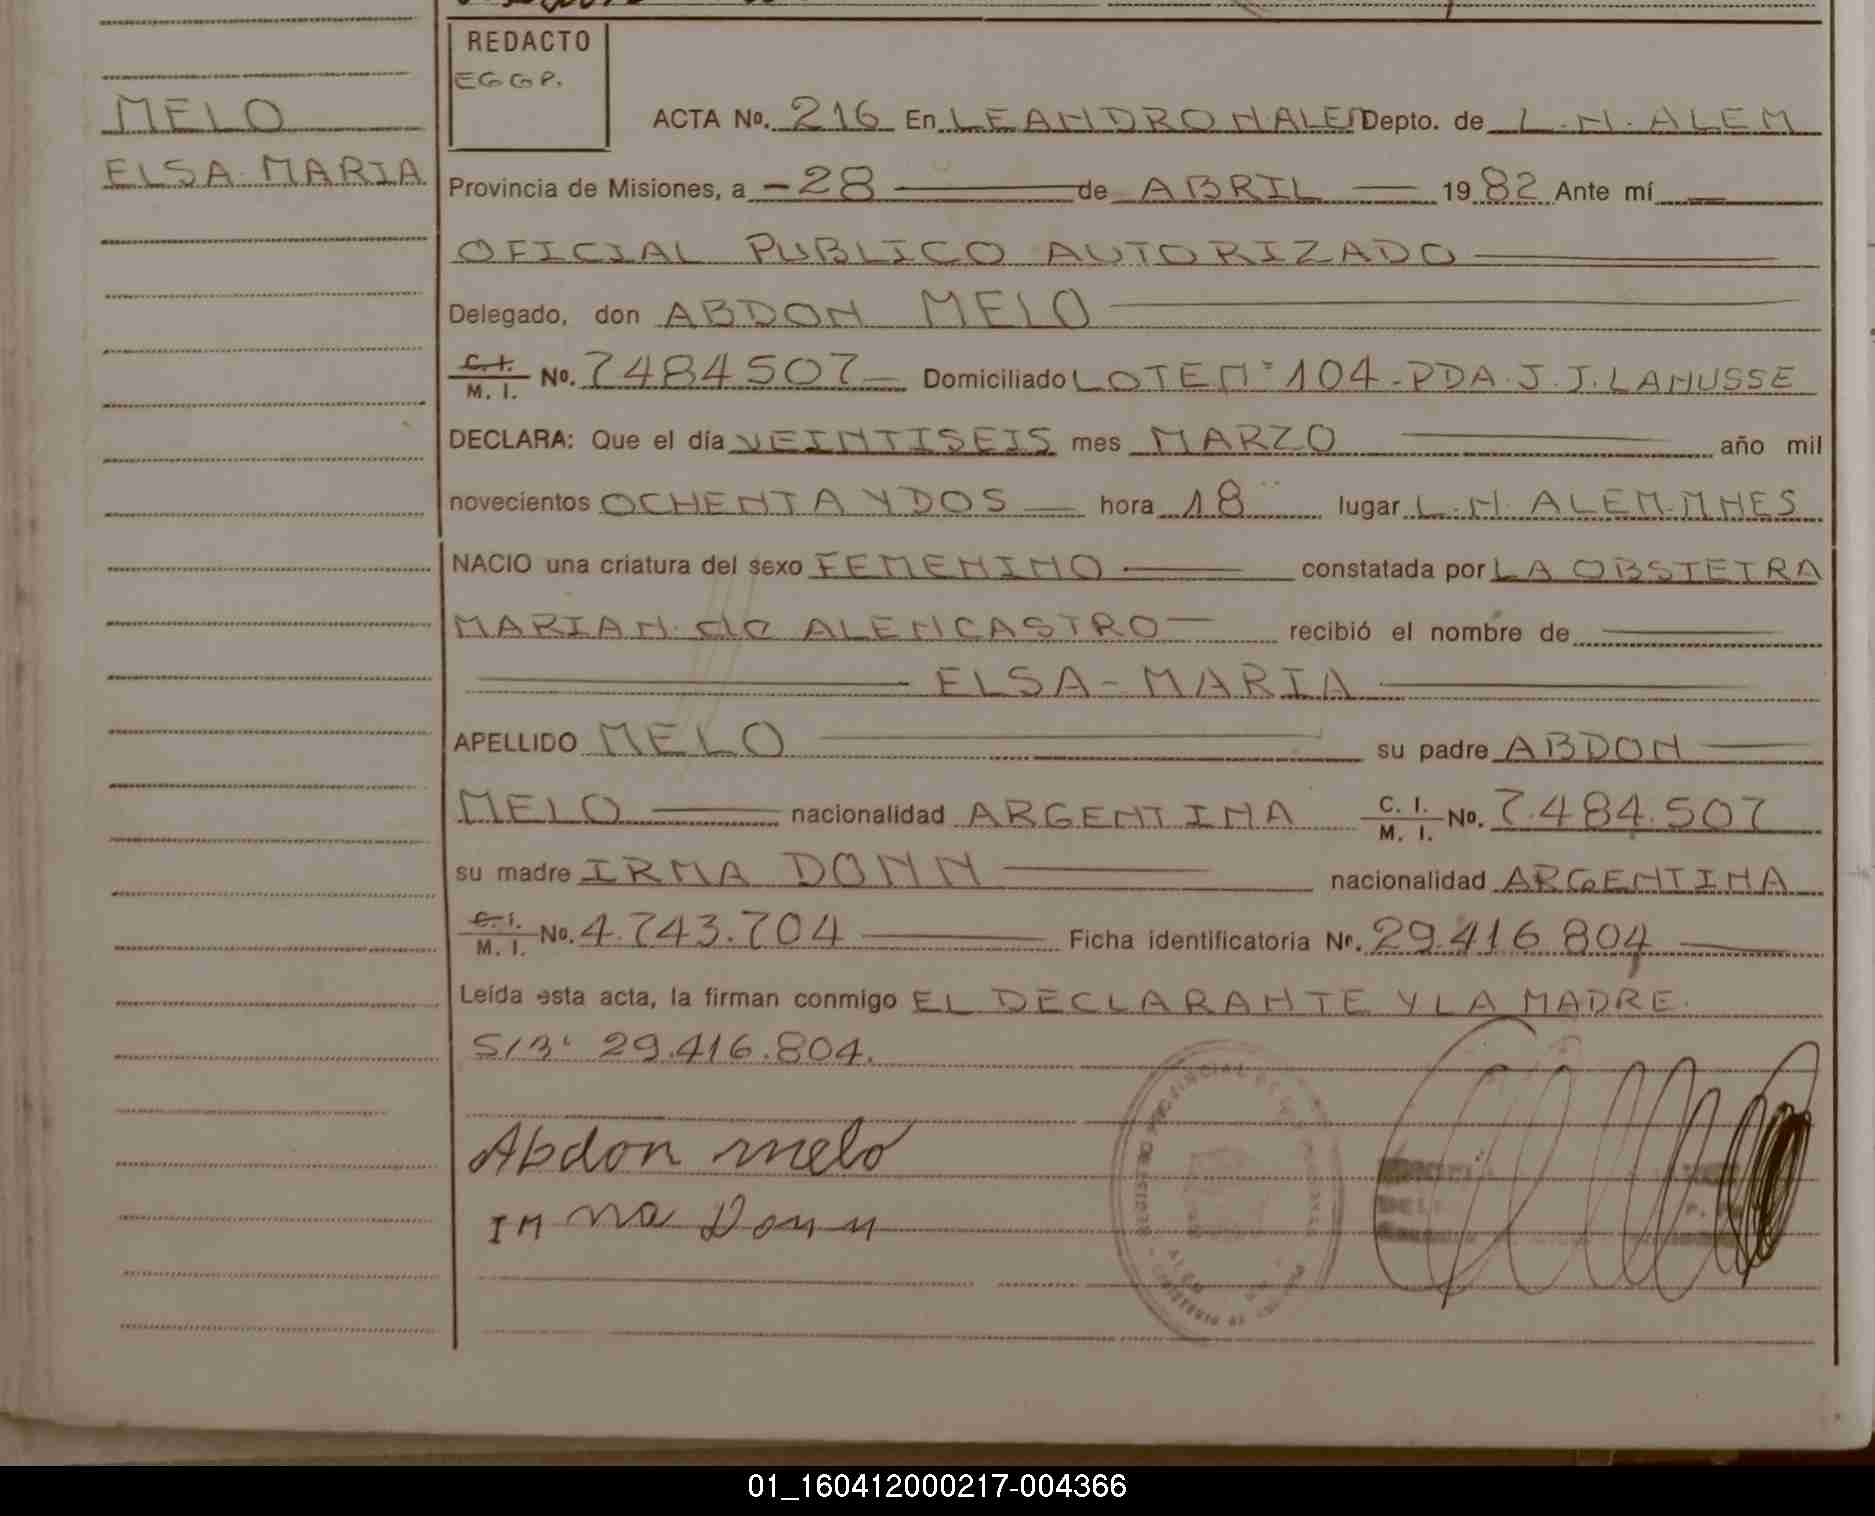 REDACTO
EGGP.
MELO
ELSA MARIA
ACTA No. 216 En LEANDRO N ALEM Depto. de L.N. ALEM
Provincia de Misiones, a -28 de ABRIL 1982 Ante mí
OFICIAL PUBLICO AUTORIZADO
Delegado, don ABDON MELO
C.I. M.I. No. 7484507 Domiciliado LOTE Nº 104-PDA.J.J.LANUSSE
DECLARA: Que el día VEINTISEIS mes MARZO año mil
novecientos OCHENTA Y DOS hora 18 lugar L.N. ALEM-MNES
NACIO una criatura del sexo FEMENINO constatada por LA OBSTETRA
MARIA N. de ALENCASTRO recibió el nombre de
ELSA-MARIA
APELLIDO MELO su padre ABDON
MELO nacionalidad ARGENTINA C.I. M.I. No. 7.484.507
su madre IRMA DONN nacionalidad ARGENTINA
C.I. M.I. No. 4.743.704 Ficha identificatoria Nº. 29.416.804
Leída esta acta, la firman conmigo EL DECLARANTE Y LA MADRE.
S/B: 29.416.804.
Abdon melo
Irma Donn
01_160412000217-004366